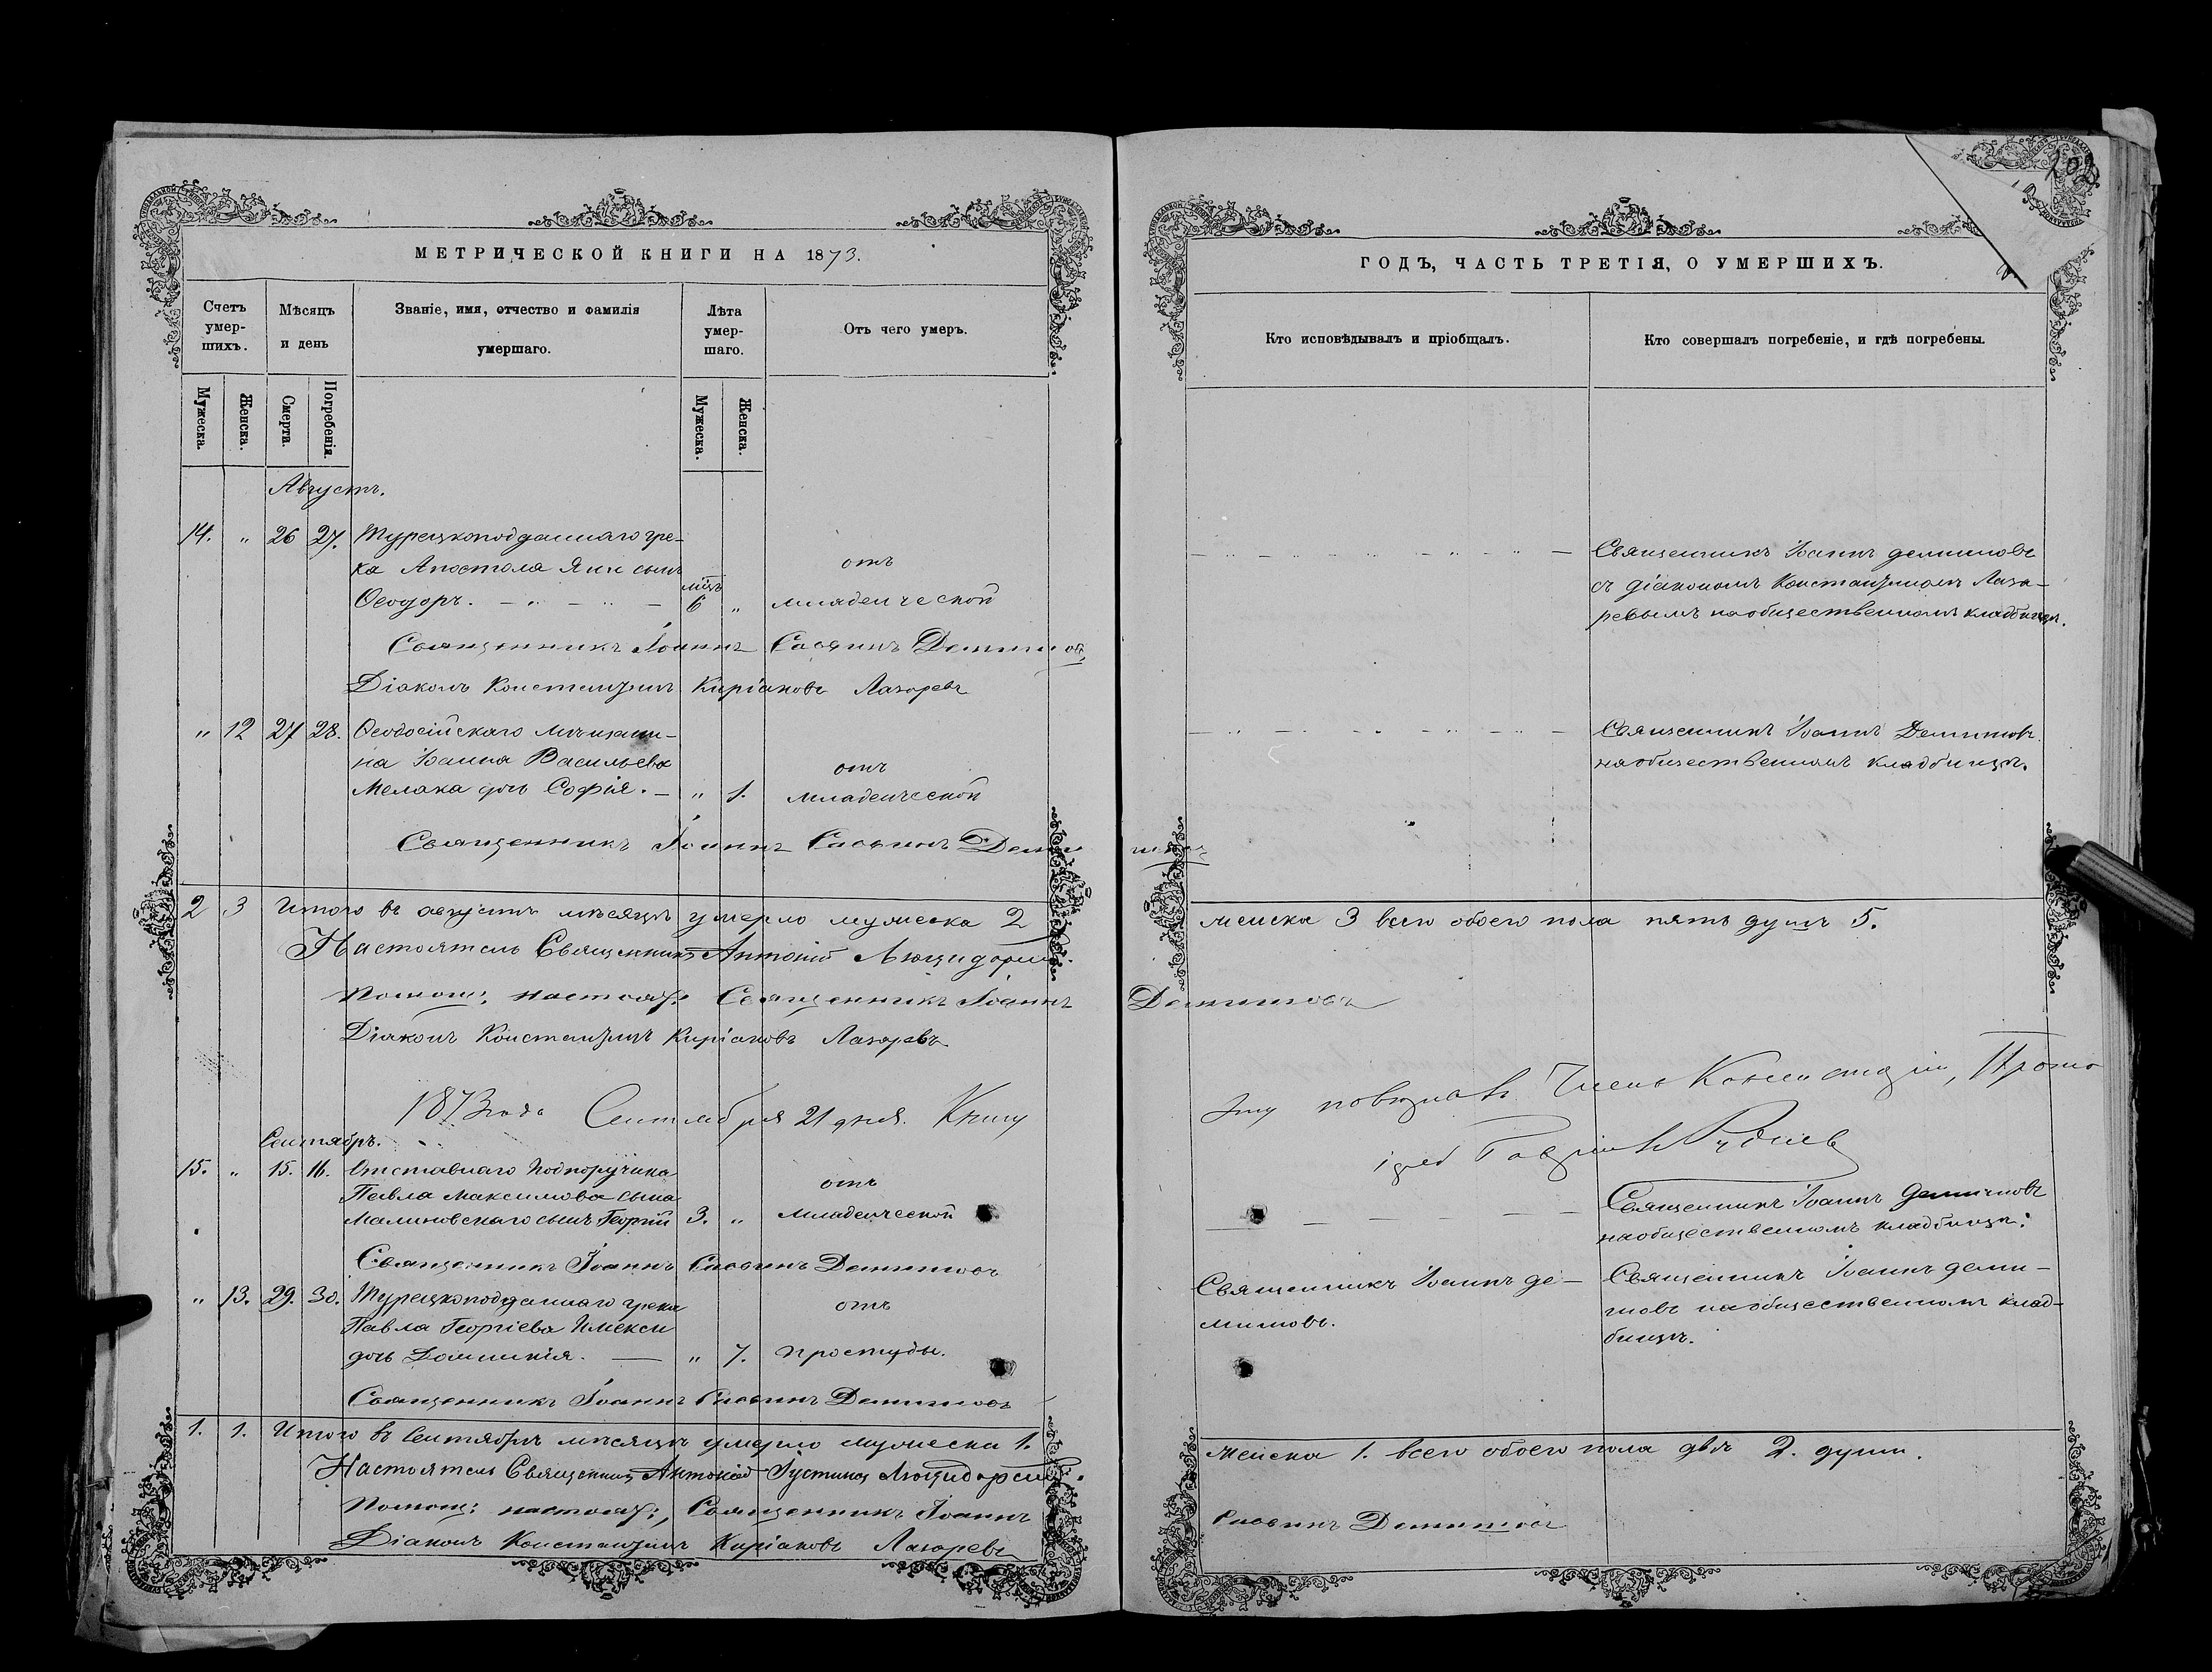 МЕТРИЧЕСКОЙ КНИГИ НА 1873.
Счетъ умер-шихъ.
Мѣсяцъ и день
Званіе, имя, отчество и фамилія умершаго.
Лѣта умер-шаго.
Отъ чего умеръ.
Мужеска.
Женска.
Смерти.
Погребенія.
Мужеска.
Женска.
Августъ.
14. " 26 27. Турецкоподданнаго гре-
ка Апостола Яни сынъ отъ
Ѳеодоръ. мцъ 6 " младенческой
Священникъ Іоаннъ Саввинъ Демиповъ
Діаконъ Константинъ Киріаковъ Лазаревъ
" 12 27 28. Ѳеодосійскаго мѣщани-
на Іоанна Васильева отъ
Мелака дочь Софія. " 1. младенческой
Священникъ Іоаннъ Саввинъ
2 3 Итого въ августѣ мѣсяцѣ умерло мужеска 2
Настоятель Священникъ Антоній
Помощ: настоят: Священникъ Іоаннъ
Діаконъ Константинъ Киріаковъ Лазаревъ
1873 года Сентября 21 дня. Книгу
Сентябрь.
15. " 15. 16. Отставнаго Подпоручика
Павла Максимова сына отъ
Малиновскаго сынъ Георгій 3. " младенческой
Священникъ Іоаннъ Саввинъ
" 13. 29. 30. Турецкоподданнаго грека
Павла Георгіева отъ
дочь Домникія. " 7. простуды.
Священникъ Іоаннъ Саввинъ
1. 1. Итого въ Сентябрѣ мѣсяцѣ умерло мужеска 1.
Настоятель Священникъ Антоній
Помощ: настоят:, Священникъ Іоаннъ
Діаконъ Константинъ Киріаковъ Лазаревъ
202
ГОДЪ, ЧАСТЬ ТРЕТІЯ, О УМЕРШИХЪ.
Кто исповѣдывалъ и пріобщалъ.
Кто совершалъ погребеніе, и гдѣ погребены.
Священникъ Іоаннъ
съ діакономъ Константиномъ Лаза-
ревымъ на общественномъ кладбищѣ.
Священникъ Іоаннъ
на общественномъ кладбищѣ.
женска 3 всего обоего пола пять душъ 5.
сію повѣрялъ Членъ Консисторіи, Прото
іерей
Священникъ Іоаннъ
на общественномъ кладбищѣ.
Священникъ Іоаннъ Де-
Священникъ Іоаннъ
на общественномъ клад-
бищѣ.
женска 1. всего обоего пола двѣ 2. души.
Саввинъ